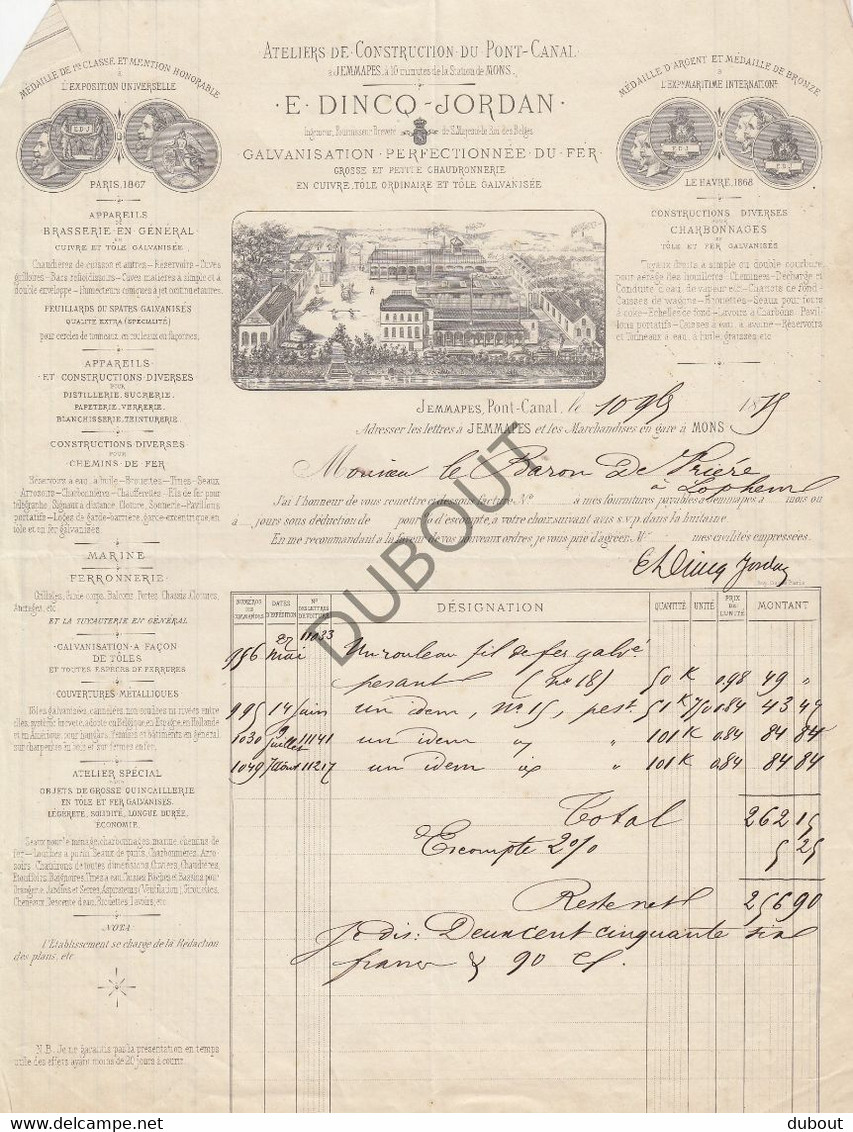 ATELIERS DE CONSTRUCTION DU PONT-CANAL
à JEMMAPES, à 10 minutes de la Station de MONS.
E. DINCQ-JORDAN
Ingénieur, Fournisseur Breveté de S. Majesté le Roi des Belges
GALVANISATION PERFECTIONNÉE DU FER
GROSSE ET PETITE CHAUDRONNERIE
EN CUIVRE, TÔLE ORDINAIRE ET TÔLE GALVANISÉE
MÉDAILLE DE 1re CLASSE ET MENTION HONORABLE
à
L'EXPOSITION UNIVERSELLE
E D J
PARIS, 1867
MÉDAILLE D'ARGENT ET MÉDAILLE DE BRONZE
à
L'EXPon MARITIME INTERNATIONle
E D J
E D J
LE HAVRE, 1868
APPAREILS
DE
BRASSERIE EN GÉNÉRAL
EN
CUIVRE ET TÔLE GALVANISÉE
Chaudières de cuisson et autres – Réservoirs – Cuves
guilloires – Bacs refroidissoirs – Cuves matières à simple et à
double enveloppe – Humecteurs coniques à jet continu et autres.
FEUILLARDS OU SPATES GALVANISÉS
QUALITÉ EXTRA (SPÉCIALITÉ)
pour cercles de tonneaux en rouleaux ou façonnés.
APPAREILS
ET CONSTRUCTIONS DIVERSES
POUR
DISTILLERIE, SUCRERIE,
PAPETERIE, VERRERIE,
BLANCHISSERIE, TEINTURERIE.
CONSTRUCTIONS DIVERSES
POUR
CHEMINS DE FER
Réservoirs à eau, à huile – Brouettes – Tines – Seaux
Arrosoirs – Charbonnières – Chaufferettes – Fils de fer pour
télégraphe, Signaux à distance, Cloture, Sonnerie – Pavillons
portatifs – Loges de garde-barrière, garde-excentrique, en
tôle et en fer galvanisés.
MARINE
FERRONNERIE
Grillages, Garde corps, Balcons, Portes, Chassis, Clotures,
Ancrages, etc.
ET LA TUYAUTERIE EN GÉNÉRAL
GALVANISATION A FAÇON
DE TÔLES
ET TOUTES ESPÈCES DE FERRURES
COUVERTURES MÉTALLIQUES
Tôles galvanisées, cannelées, non soudées ni rivées entre
elles, système breveté, adopté en Belgique, en Espagne, en Hollande
et en Amérique, pour hangars, terrasses et bâtiments en général,
sur charpentes en bois et sur fermes en fer.
ATELIER SPÉCIAL
POUR
OBJETS DE GROSSE QUINCAILLERIE
EN TÔLE ET FER GALVANISÉS.
LÉGÈRETÉ, SOLIDITÉ, LONGUE DURÉE,
ÉCONOMIE.
NOTA
l'Etablissement se charge de la Rédaction
des plans, etc.
N.B. Je ne garantis pas la présentation en temps
utile des effets ayant moins de 20 jours à courir.
CONSTRUCTIONS DIVERSES
POUR
CHARBONNAGES
EN
TÔLE ET FER GALVANISÉS
Tuyaux droits à simple ou double courbure
pour aérage des houillères – Cheminées – Décharge et
Conduite d'eau, de vapeur etc. – Chassis de fond –
Caisses de wagons – Brouettes – Seaux pour fours
à coke – Echelles de fond – Lavoirs à Charbons, Pavil-
lons portatifs – Caisses à eau, à avoine – Réservoirs
et Tonneaux à eau, à huile, graisses, etc.
JEMMAPES, Pont-Canal, le 10 9bre 1875
Adresser les lettres à JEMMAPES et les Marchandises en gare à MONS
Monsieur le Baron De
à Lophem
J'ai l'honneur de vous remettre ci-dessous facture N° à mes fournitures payables à Jemmapes à mois ou
à jours sous déduction de pour % d'escompte, à votre choix suivant avis s.v.p. dans la huitaine.
En me recommandant à la faveur de vos nouveaux ordres, je vous prie d'agréer, Mr mes civilités empressées.
E. Dincq Jordan
NUMÉROS DE COMMANDES DATES D'EXPÉDITION Nos DES LETTRES DE VOITURE DÉSIGNATION QUANTITÉ UNITÉ PRIX DE L'UNITÉ MONTANT
986 27 mai 11033 Un rouleau fil de fer galvé
pesant (no 18) 50 K 0.98 49 "
995 14 juin un idem, no 15, pest. 51 K 7/0 0.84 43 47
1030 9 juillet 11141 un idem " 101 K 0.84 84 84
1049 7 août 11217 un idem " 101 K 0.84 84 84
Total 262 15
Escompte 2% 5 25
Reste net 256 90
Je dis: Deux cent cinquante six
francs & 90 cs.
DUBOUT
delcampe.net
dubout